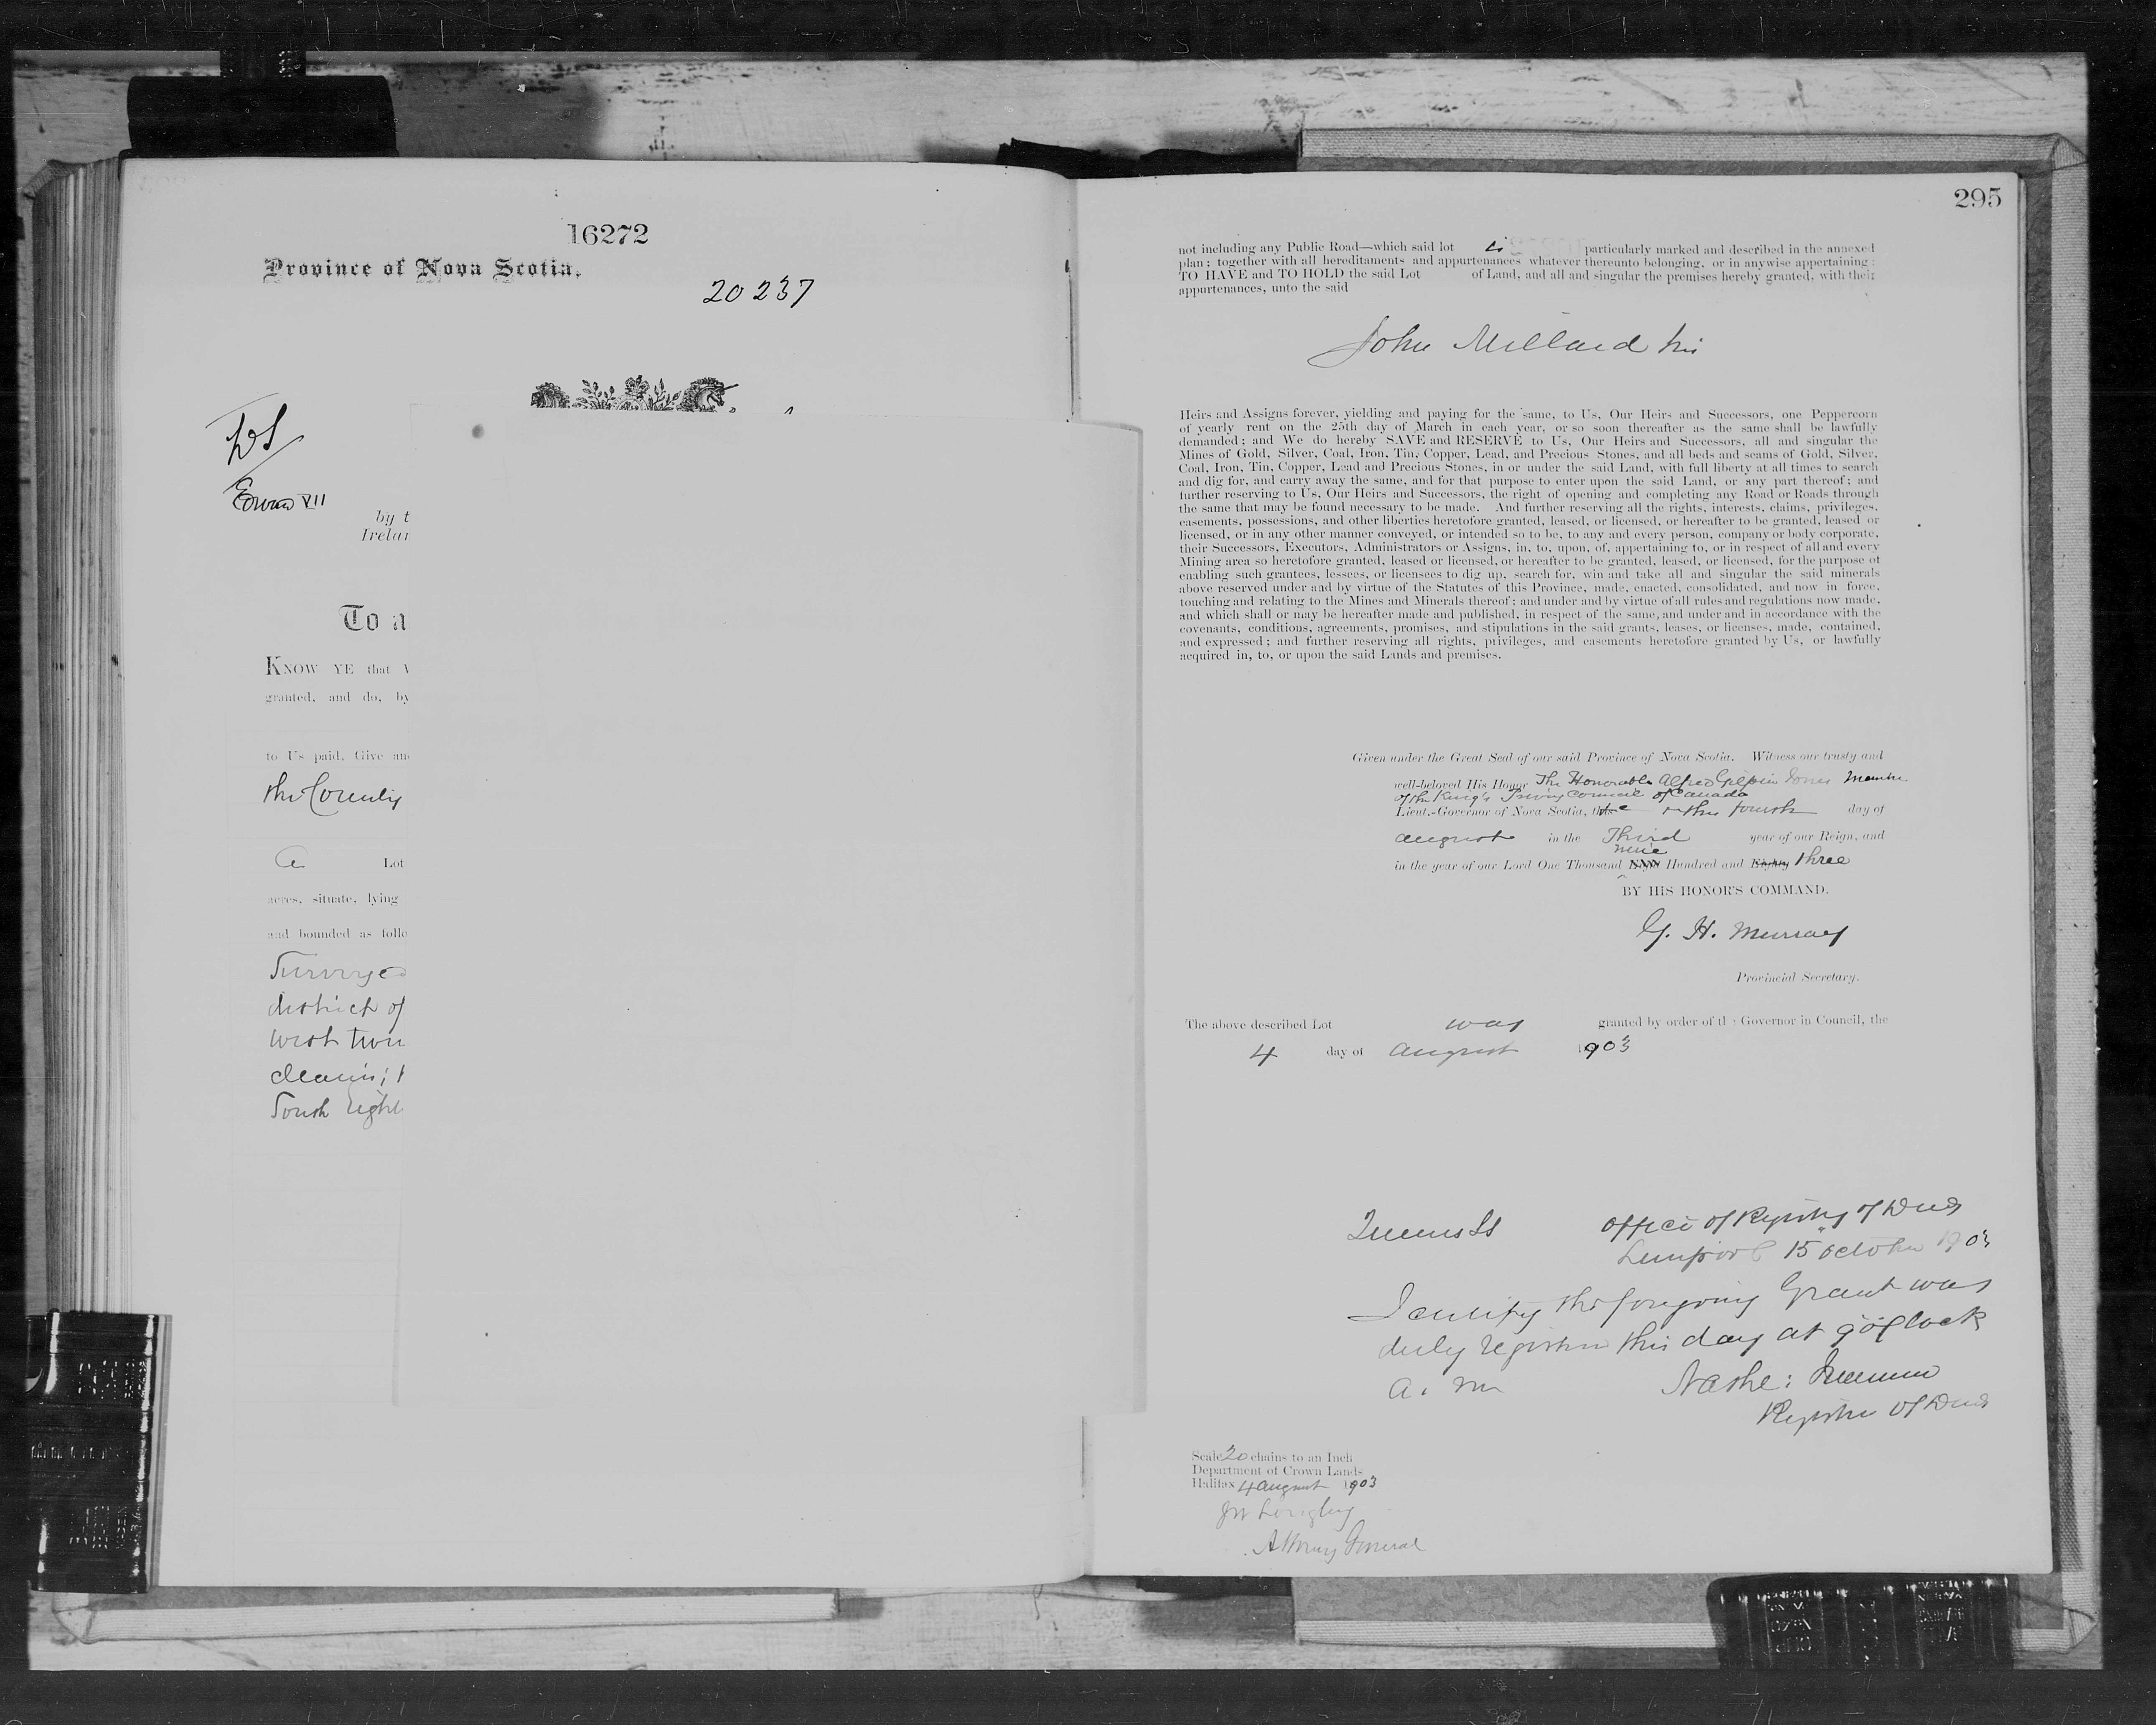 16272
Province of Nova Scotia.
20237
LS
Edward VII
by t
Irelan
To a
KNOW YE that W
granted, and do, by
to Us paid, Give and
the County
a Lot
acres, situate, lying
and bounded as follo
Surveyed
district of
West twen
chains;
South eight
295
not including any Public Road—which said lot is particularly marked and described in the annexed
plan; together with all hereditaments and appurtenances whatever thereunto belonging, or in anywise appertaining:
TO HAVE and TO HOLD the said Lot of Land, and all and singular the premises hereby granted, with their
appurtenances, unto the said
John Millard his
Heirs and Assigns forever, yielding and paying for the same, to Us, Our Heirs and Successors, one Peppercorn
of yearly rent on the 25th day of March in each year, or so soon thereafter as the same shall be lawfully
demanded; and We do hereby SAVE and RESERVE to Us, Our Heirs and Successors, all and singular the
Mines of Gold, Silver, Coal, Iron, Tin, Copper, Lead, and Precious Stones, and all beds and seams of Gold, Silver,
Coal, Iron, Tin, Copper, Lead and Precious Stones, in or under the said Land, with full liberty at all times to search
and dig for, and carry away the same, and for that purpose to enter upon the said Land, or any part thereof; and
further reserving to Us, Our Heirs and Successors, the right of opening and completing any Road or Roads through
the same that may be found necessary to be made. And further reserving all the rights, interests, claims, privileges,
easements, possessions, and other liberties heretofore granted, leased, or licensed, or hereafter to be granted, leased or
licensed, or in any other manner conveyed, or intended so to be, to any and every person, company or body corporate,
their Successors, Executors, Administrators or Assigns, in, to, upon, of, appertaining to, or in respect of all and every
Mining area so heretofore granted, leased or licensed, or hereafter to be granted, leased, or licensed, for the purpose of
enabling such grantees, lessees, or licensees to dig up, search for, win and take all and singular the said minerals
above reserved under and by virtue of the Statutes of this Province, made, enacted, consolidated, and now in force,
touching and relating to the Mines and Minerals thereof; and under and by virtue of all rules and regulations now made,
and which shall or may be hereafter made and published, in respect of the same, and under and in accordance with the
covenants, conditions, agreements, promises, and stipulations in the said grants, leases, or licenses, made, contained,
and expressed; and further reserving all rights, privileges, and easements heretofore granted by Us, or lawfully
acquired in, to, or upon the said Lands and premises.
Given under the Great Seal of our said Province of Nova Scotia. Witness our trusty and
well-beloved His Honor The Honorable Alfred Gilpin Jones Member
of the King's Privy Council of Canada
Lieut.-Governor of Nova Scotia, the fourth day of
August in the Third year of our Reign, and
nine
in the year of our Lord One Thousand Hundred and Eighty three
BY HIS HONOR'S COMMAND.
G. H. Murray
Provincial Secretary.
The above described Lot was granted by order of the Governor in Council, the
4 day of August 1903
Queens SS Office of Registry of Deeds
Liverpool 15 October 1903
I certify the foregoing Grant was
duly registered this day at 9 o'clock
a. m
Registrar of Deeds
Scale 20 chains to an Inch
Department of Crown Lands
Halifax 4 August 1903
JW Longley
Attorney General